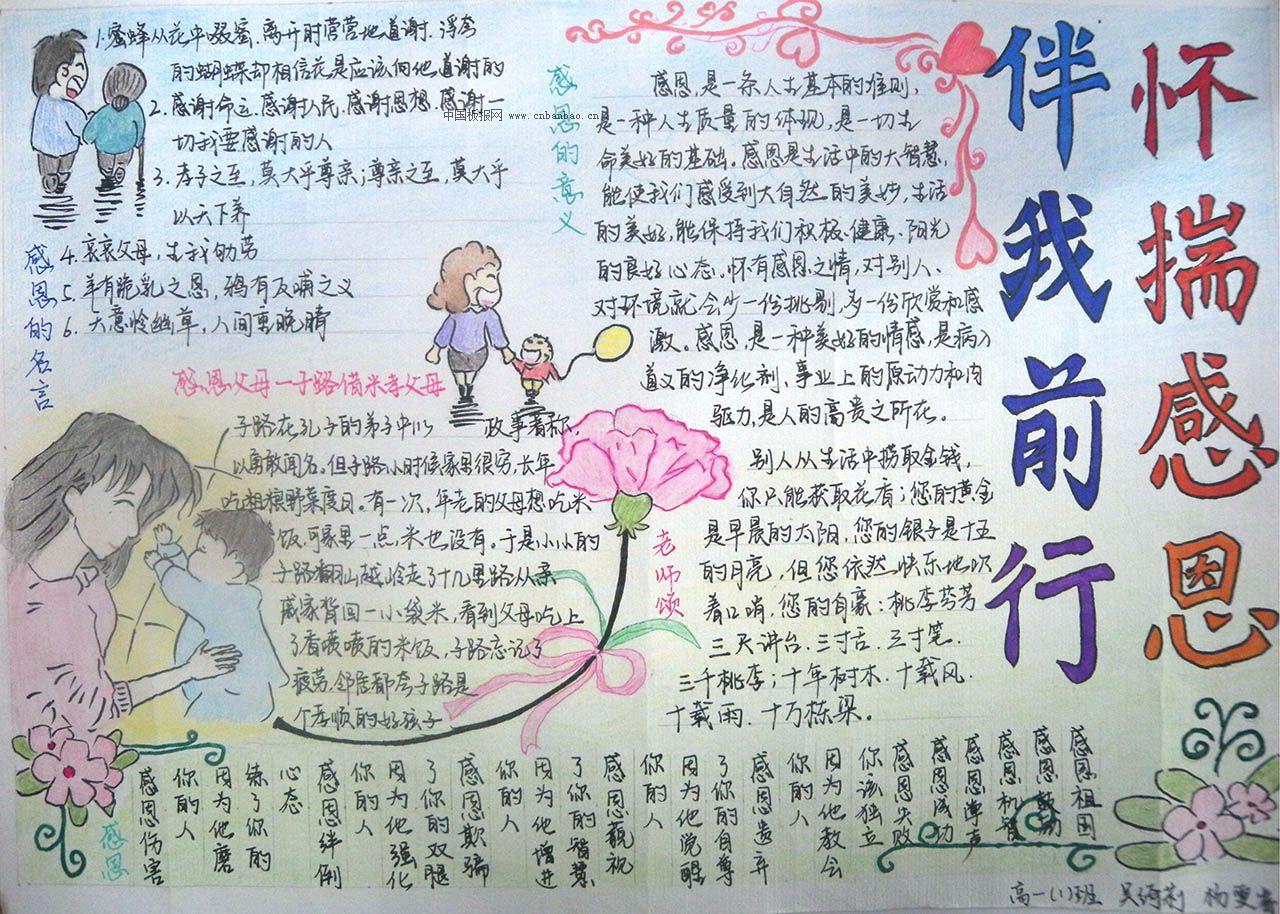 怀揣感恩
伴我前行
1.蜜蜂从花中啜蜜.离开时营营地道谢.浮夸
的蝴蝶却相信花是应该向他道谢的
2.感谢命运.感谢人民.感谢思想.感谢一
中国板报网 www.cnbanbao.cn
切我要感谢的人
3.孝子之至,莫大乎尊亲;尊亲之至,莫大乎
以天下养
4.哀哀父母,生我劬劳
5.羊有跪乳之恩,鸦有反哺之义
6.天意怜幽草,人间重晚晴
感恩的名言
感恩的意义
感恩,是一条人生基本的准则,
是一种人生质量的体现,是一切生
命美好的基础。感恩是生活中的大智慧,
能使我们感受到大自然的美妙,生活
的美好,能保持我们积极.健康.阳光
的良好心态。怀有感恩之情,对别人、
对环境就会少一份挑剔,多一份欣赏和感
激。感恩,是一种美好的情感,是病入
道义的净化剂、事业上的原动力和内
驱力,是人的高贵之所在。
感恩父母—子路借米孝父母
子路在孔子的弟子中以 政事著称,
以勇敢闻名。但子路小时候家里很穷,长年
吃粗粮野菜度日。有一次,年老的父母想吃米
饭,可家里一点米也没有。于是小小的
子路翻山越岭走了十几里路从亲
戚家背回一小袋米,看到父母吃上
了香喷喷的米饭,子路忘记了
疲劳.邻居都夸子路是
个孝顺的好孩子
老师颂
别人从生活中捞取金钱,
你只能获取花香;您的黄金
是早晨的太阳,您的银子是十五
的月亮,但您依然快乐地吹
着口哨,您的自豪:桃李芬芳
三尺讲台.三寸舌.三寸笔.
三千桃李;十年树木.十载风.
十载雨.十万栋梁。
感恩
感恩伤害
你的人
因为他磨
练了你的
心态
感恩绊倒
你的人
因为他强化
了你的双腿
感恩欺骗
你的人
因为他增进
了你的智慧
感恩藐视
你的人
因为他觉醒
了你的自尊
感恩遗弃
你的人
因为他教会
你该独立
感恩失败
感恩成功
感恩掌声
感恩机智
感恩鼓励
感恩祖国
高一(1)班